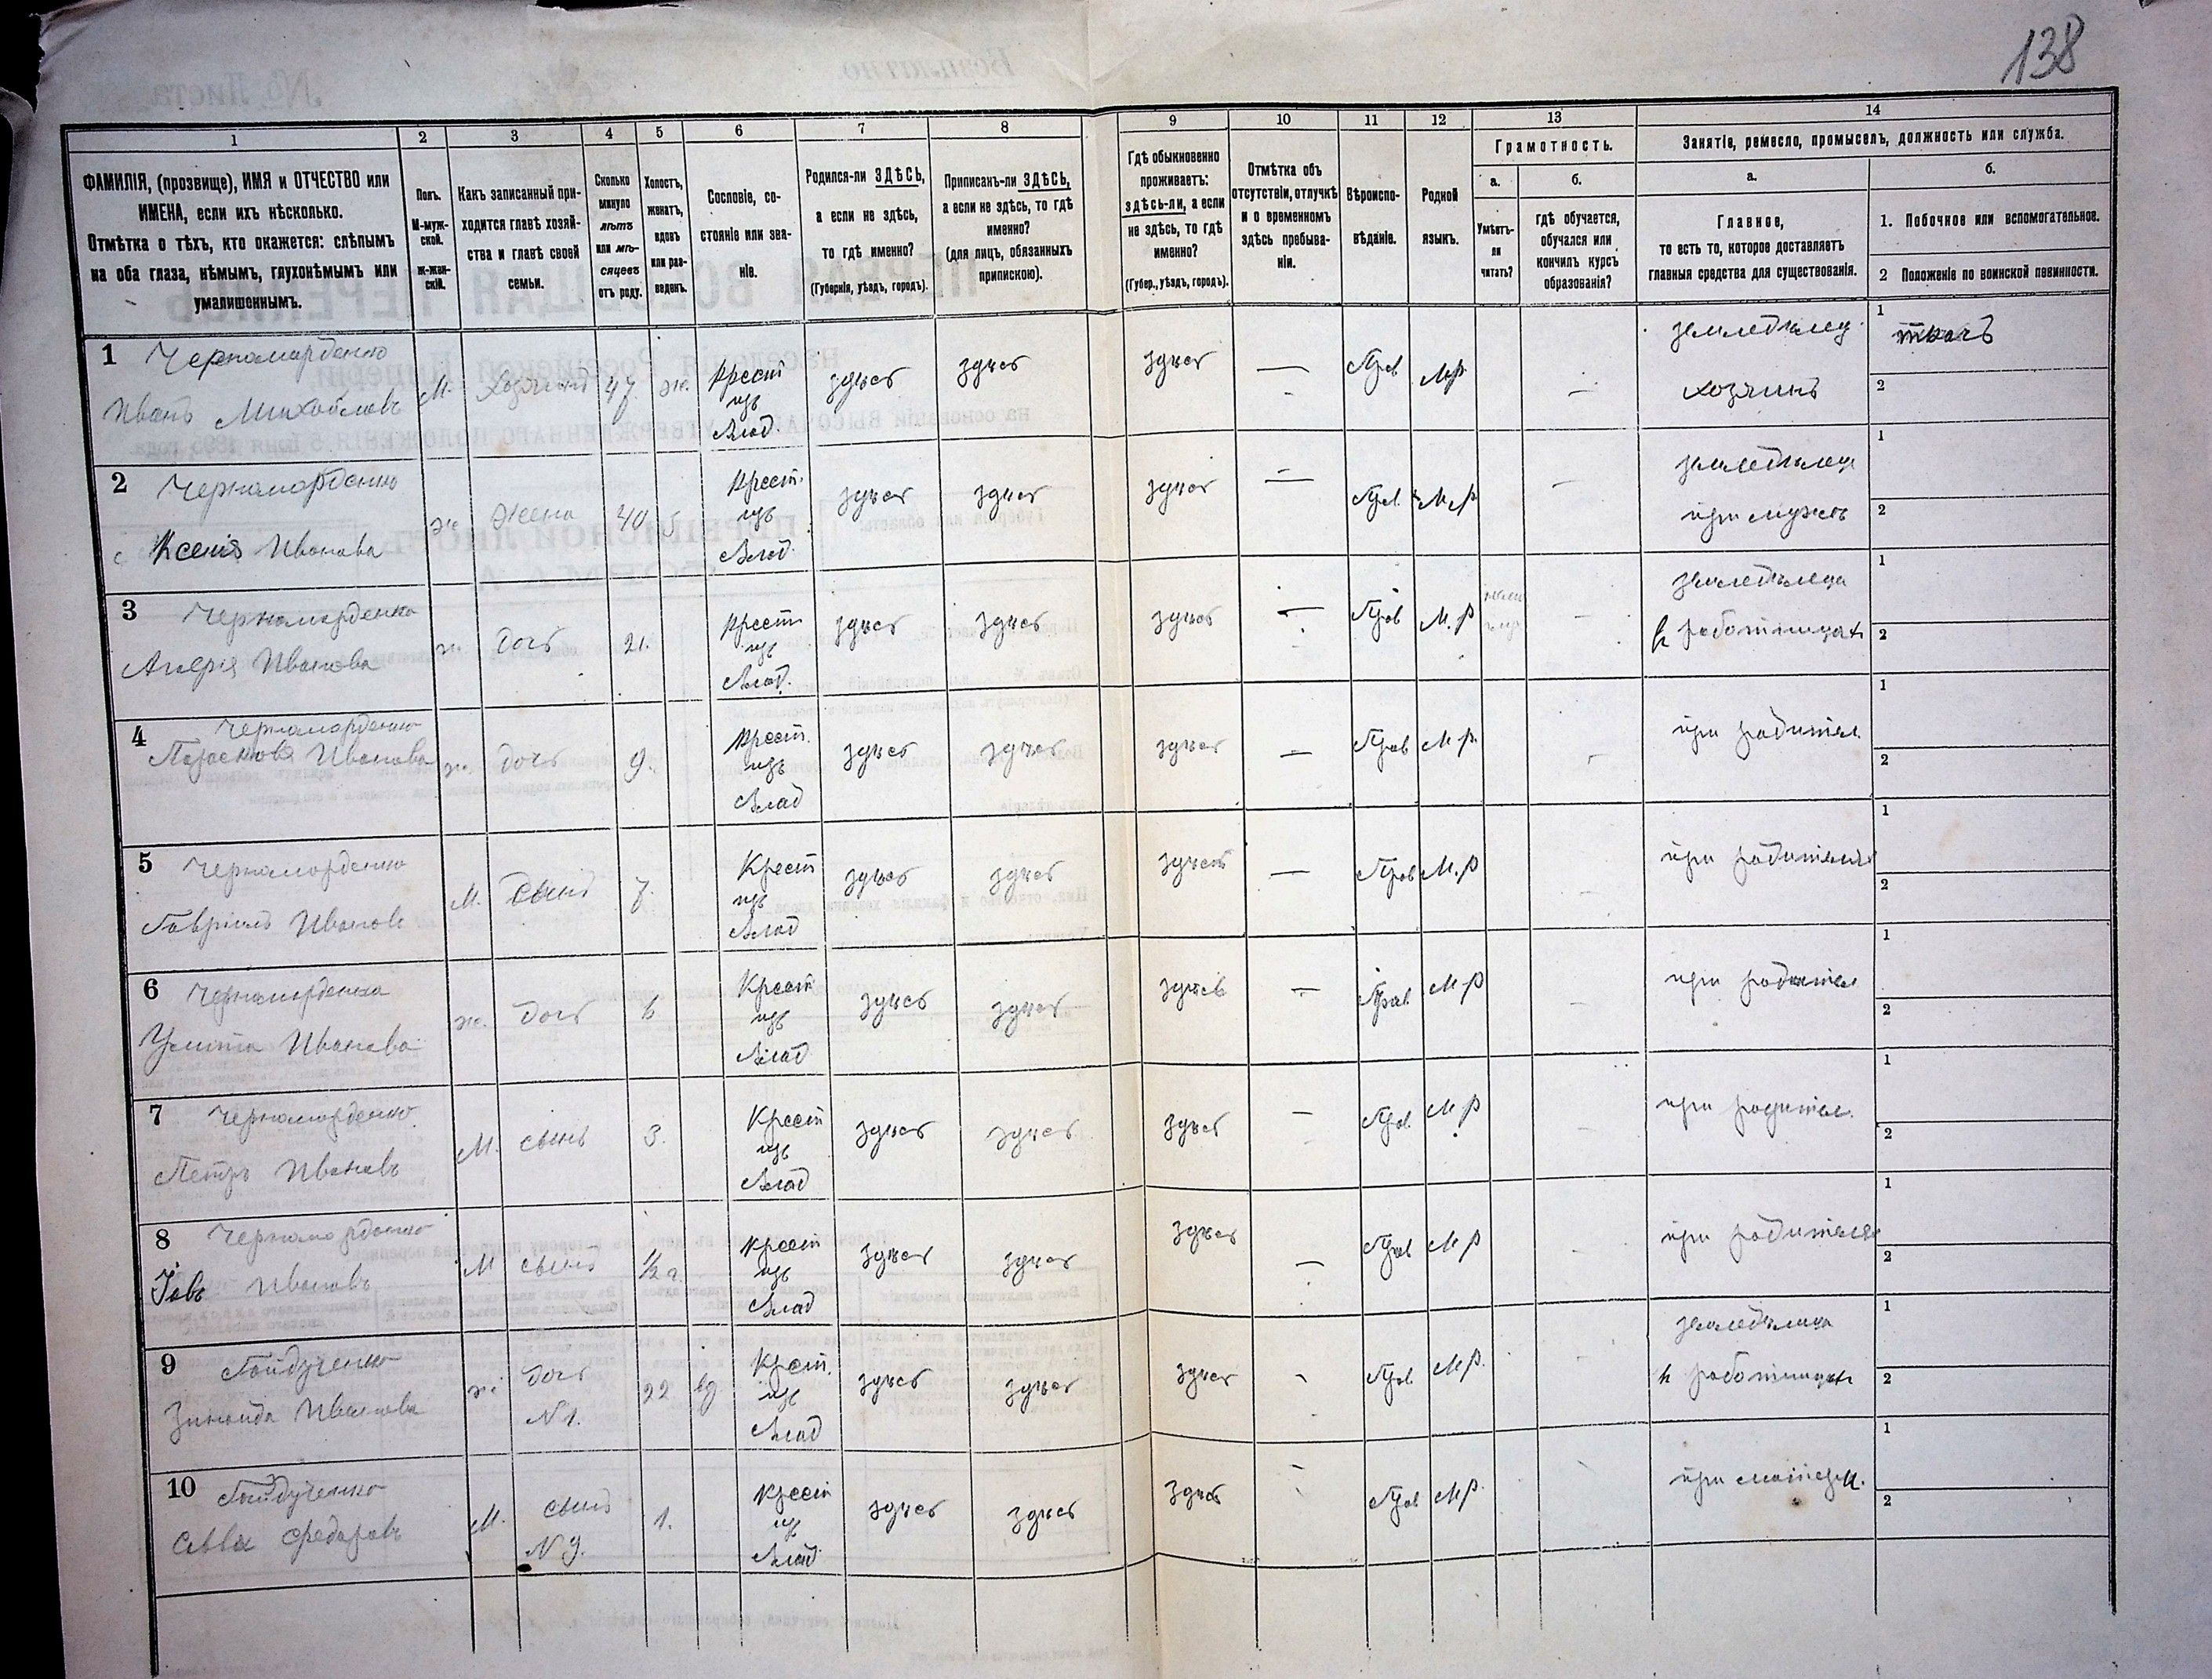 138
1
2
3
4
5
6
7
8
9
10
11
12
13
14
ФАМИЛІЯ, (прозвище), ИМЯ и ОТЧЕСТВО или
ИМЕНА, если ихъ нѣсколько.
Отмѣтка о тѣхъ, кто окажется: слѣпымъ
на оба глаза, нѣмымъ, глухонѣмымъ или
умалишеннымъ.
Полъ.
М-муж-
ской.
ж-жен-
скій.
Какъ записанный при-
ходится главѣ хозяй-
ства и главѣ своей
семьи.
Сколько
минуло
лѣтъ
или мѣ-
сяцевъ
отъ роду.
Холостъ,
женатъ,
вдовъ
или раз-
веденъ.
Сословіе, со-
стояніе или зва-
ніе.
Родился-ли ЗДѢСЬ,
а если не здѣсь,
то гдѣ именно?
(Губернія, уѣздъ, городъ).
Приписанъ-ли ЗДѢСЬ,
а если не здѣсь, то гдѣ
именно?
(для лицъ, обязанныхъ
припискою).
Гдѣ обыкновенно
проживаетъ:
здѣсь-ли, а если
не здѣсь, то гдѣ
именно?
(Губер., уѣздъ, городъ).
Отмѣтка объ
отсутствіи, отлучкѣ
и о временномъ
здѣсь пребыва-
ніи.
Вѣроиспо-
вѣданіе.
Родной
языкъ.
Грамотность.
а.
б.
Умѣетъ-
ли
читать?
гдѣ обучается,
обучался или
кончилъ курсъ
образованія?
Занятіе, ремесло, промыселъ, должность или служба.
а.
б.
Главное,
то есть то, которое доставляетъ
главныя средства для существованія.
1. Побочное или вспомогательное.
2 Положеніе по воинской повинности.
1 Черномарденко
Иванъ Михайловъ
М. хозяинъ 47 ж. Крест изъ Влад. здѣсь здѣсь здѣсь — Прав М.р. — земледѣлец. хозяинъ 1 ткачъ 2
2 Черномарденко
Ксенія Иванова
ж. жена 40 Крест. изъ Влад. здѣсь здѣсь здѣсь — Прав. М.р — земледѣлец при мужѣ 1 2
3 Черномарденко
Иванова
ж. дочь 21. Крест изъ Влад. здѣсь здѣсь здѣсь — Прав М.р — земледѣлец в работницах 1 2
4 Черномарденко
Парасковія Иванова
ж. дочь 9. Крест. изъ Влад здѣсь здѣсь здѣсь — Прав М.р. — при родител 1 2
5 Черномарденко
Гавріилъ Ивановъ
М. сынъ 7. Крест изъ Влад здѣсь здѣсь здѣсь — Прав М.р при родителях 1 2
6 Черномарденко
Улита Иванова
ж. дочь 6 Крест изъ Влад здѣсь здѣсь здѣсь — Прав М р — при родител 1 2
7 Черномарденко
Петръ Ивановъ
М. сынъ 3. Крест изъ Влад здѣсь здѣсь здѣсь — Прав М р — при родител. 1 2
8 Черномарденко
Іовъ Ивановъ
М сынъ 1/2 г. Крест изъ Влад здѣсь здѣсь здѣсь — Прав М р при родителях 1 2
9 Гайдученко
Зинаида Иванова
ж. дочь N 1. 22 вд Крест. изъ Влад здѣсь здѣсь здѣсь Прав М р. земледѣлица в работницах 1 2
10 Гайдученко
Савва Федоровъ
М. сынъ N 9. 1. Крест изъ Влад здѣсь здѣсь здѣсь Прав М р. при матери. 1 2